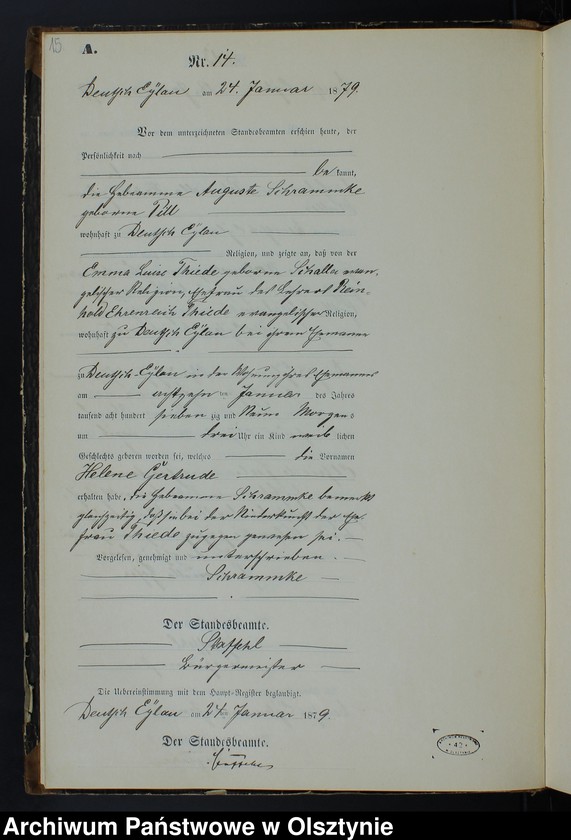 15
A.
Nr. 14.
Deutsch Eylau am 24. Januar 1879.
Vor dem unterzeichneten Standesbeamten erschien heute, der
Persönlichkeit nach
be kannt,
die Hebeamme Auguste Schrammke
geborne
wohnhaft zu Deutsch Eylau
Religion, und zeigte an, daß von der
Emma Luise Thiede geborne Schalla evan-
gelischer Religion, Ehefrau des Rein-
hold Ehrenreich Thiede evangelischer Religion,
wohnhaft zu Deutsch Eylau bei ihrem Ehemanne
zu Deutsch-Eylau in der Wohnung ihres Ehemannes
am achtzehn ten Januar des Jahres
tausend acht hundert sieben zig und Neun Morgens
um drei Uhr ein Kind weib lichen
Geschlechts geboren worden sei, welches die Vornamen
Helene Gertrude
erhalten habe, die Hebeamme Schrammke bemerkt
gleichzeitig, daß sie bei der Niederkunft der Ehe-
frau Thiede zugegen gewesen sei.
Vorgelesen, genehmigt und unterschrieben.
Schrammke
Der Standesbeamte.
Staffehl
Bürgermeister
Die Uebereinstimmung mit dem Haupt-Register beglaubigt.
Deutsch Eylau am 24. Januar 1879.
Der Standesbeamte.
42
Archiwum Państwowe w Olsztynie